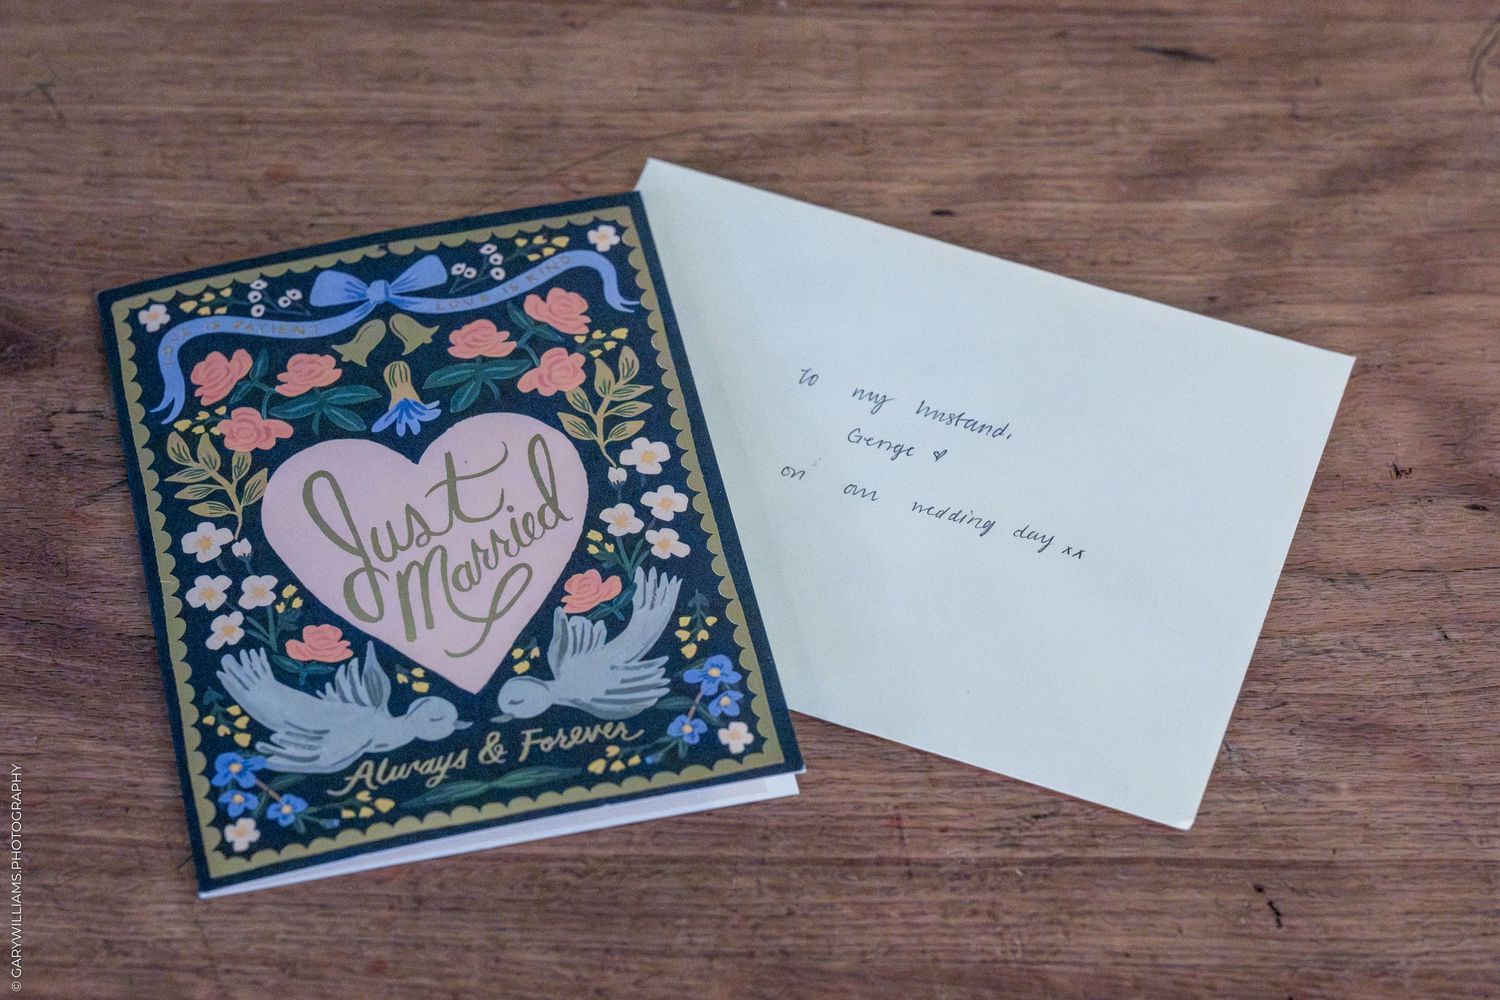 LOVE IS PATIENT LOVE IS KIND
Just
Married
Always & Forever
to my husband,
George
on our wedding day xx
© GARYWILLIAMS.PHOTOGRAPHY